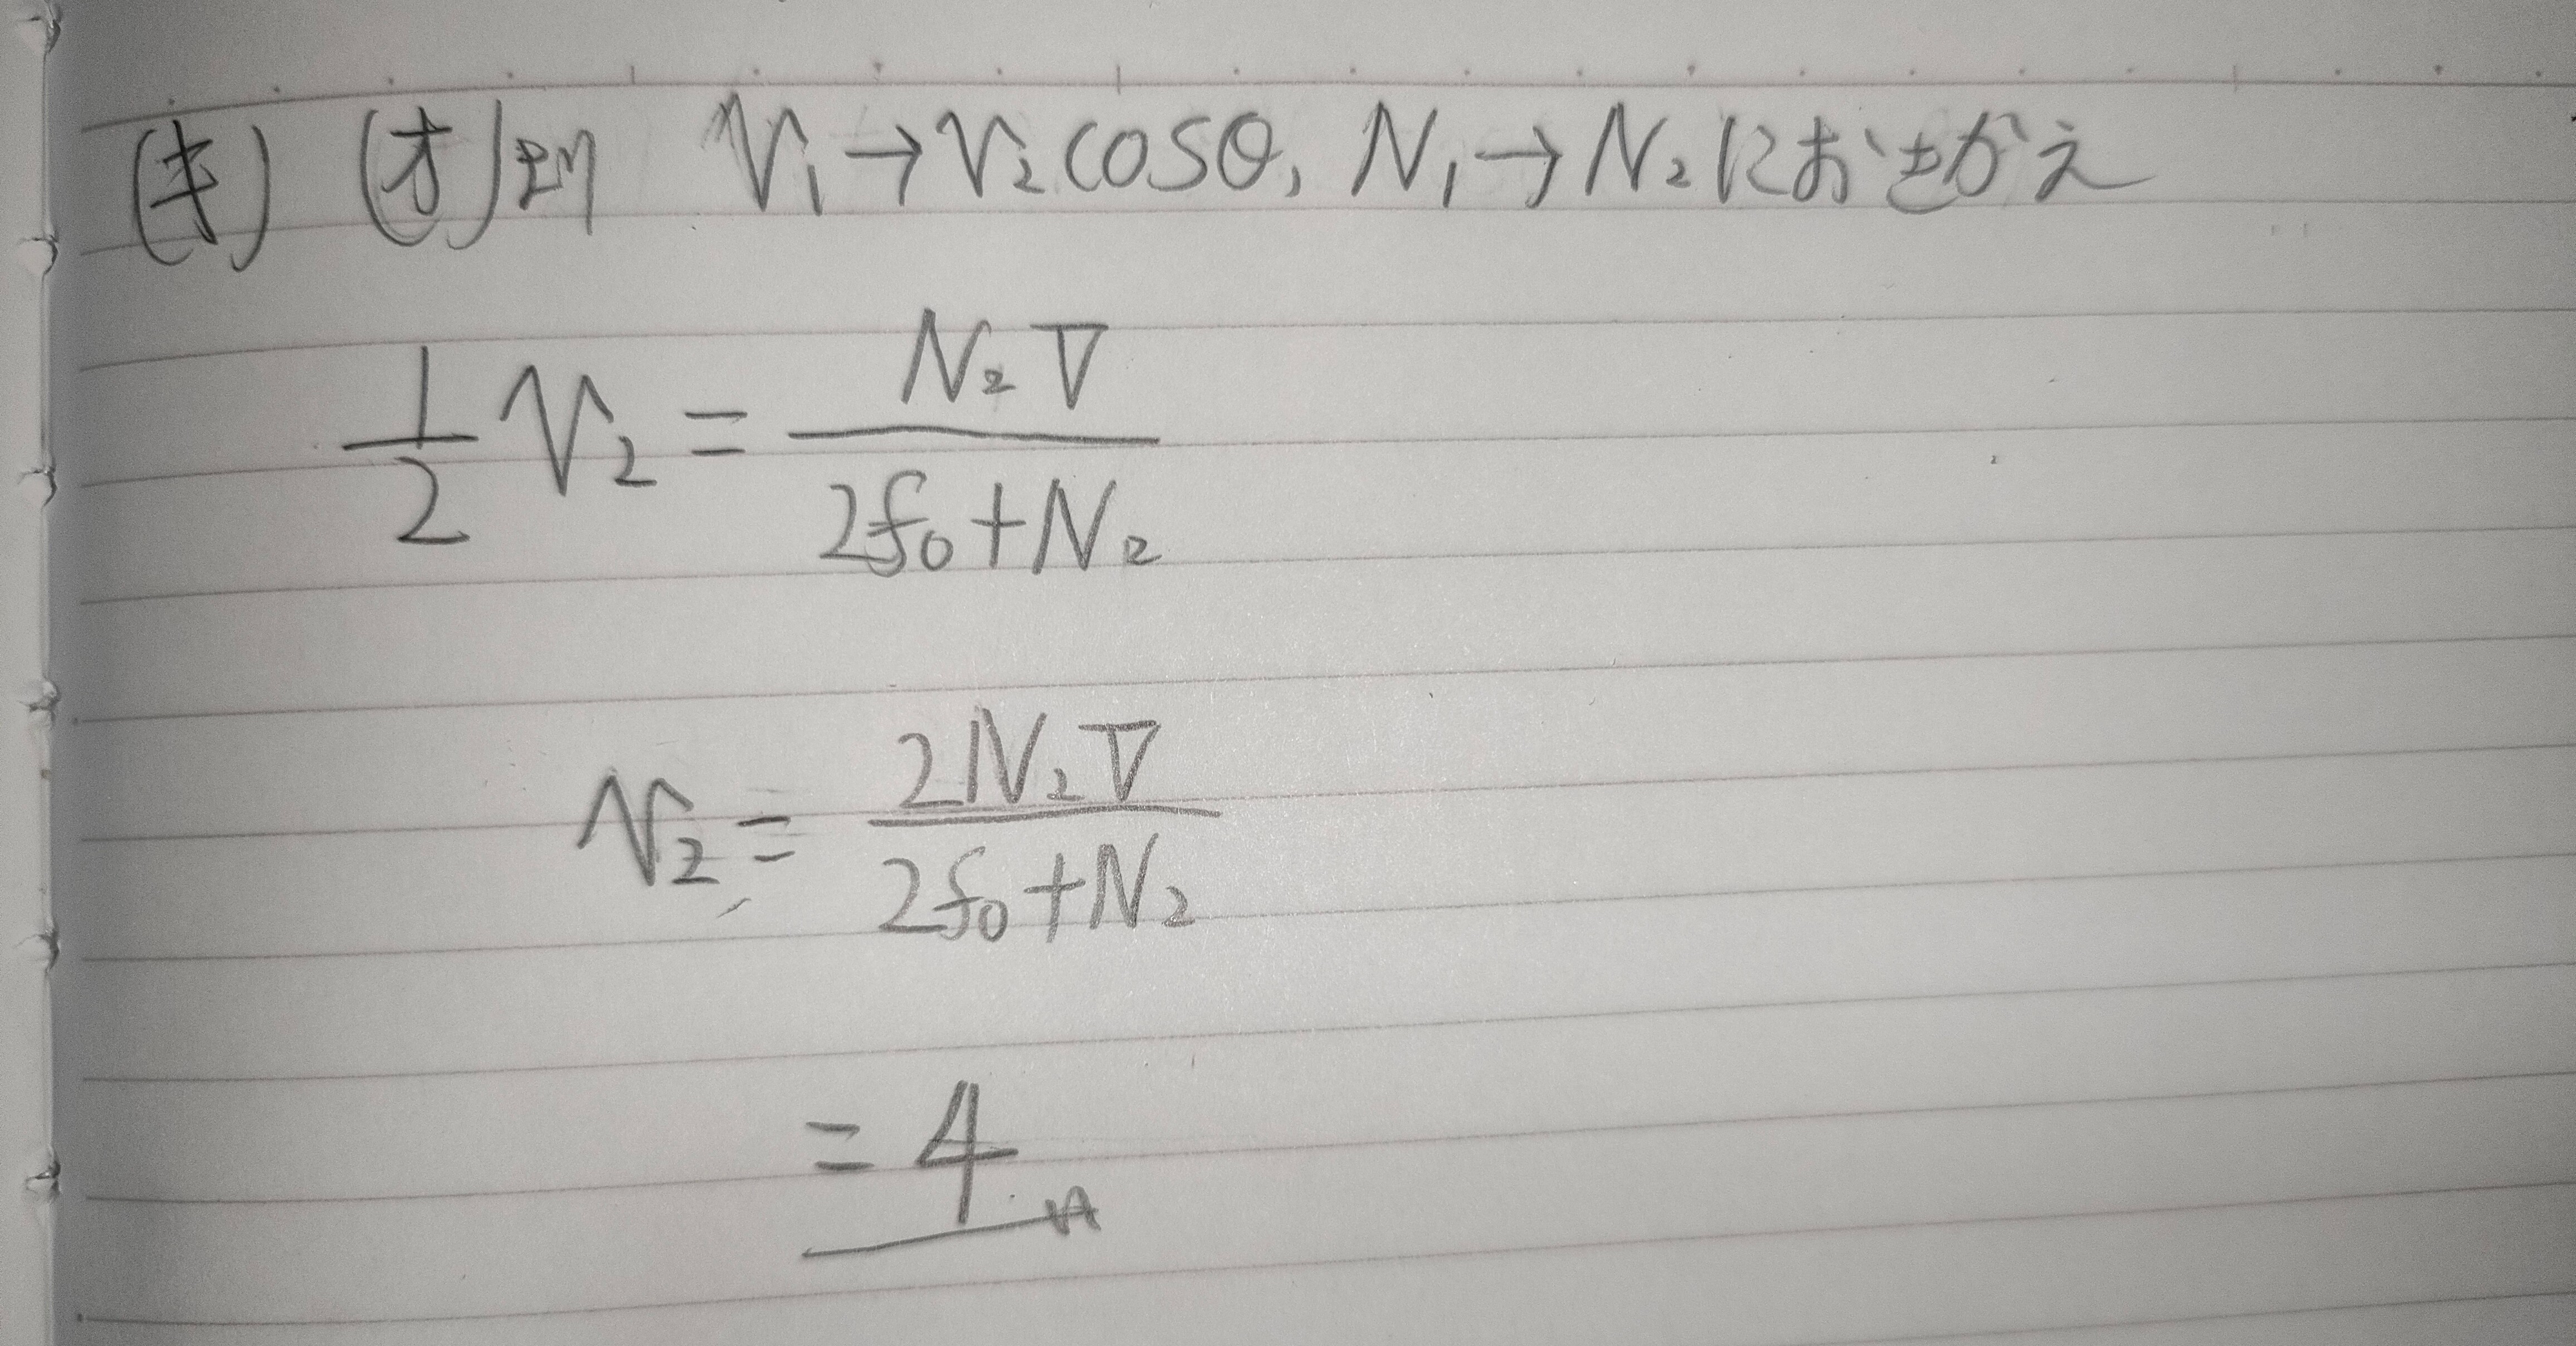 (キ) (オ)より v₁→v₂cosθ, N₁→N₂におきかえ
1/2 v₂ = N₂V / (2f₀+N₂)
v₂ = 2N₂V / (2f₀+N₂)
= 4